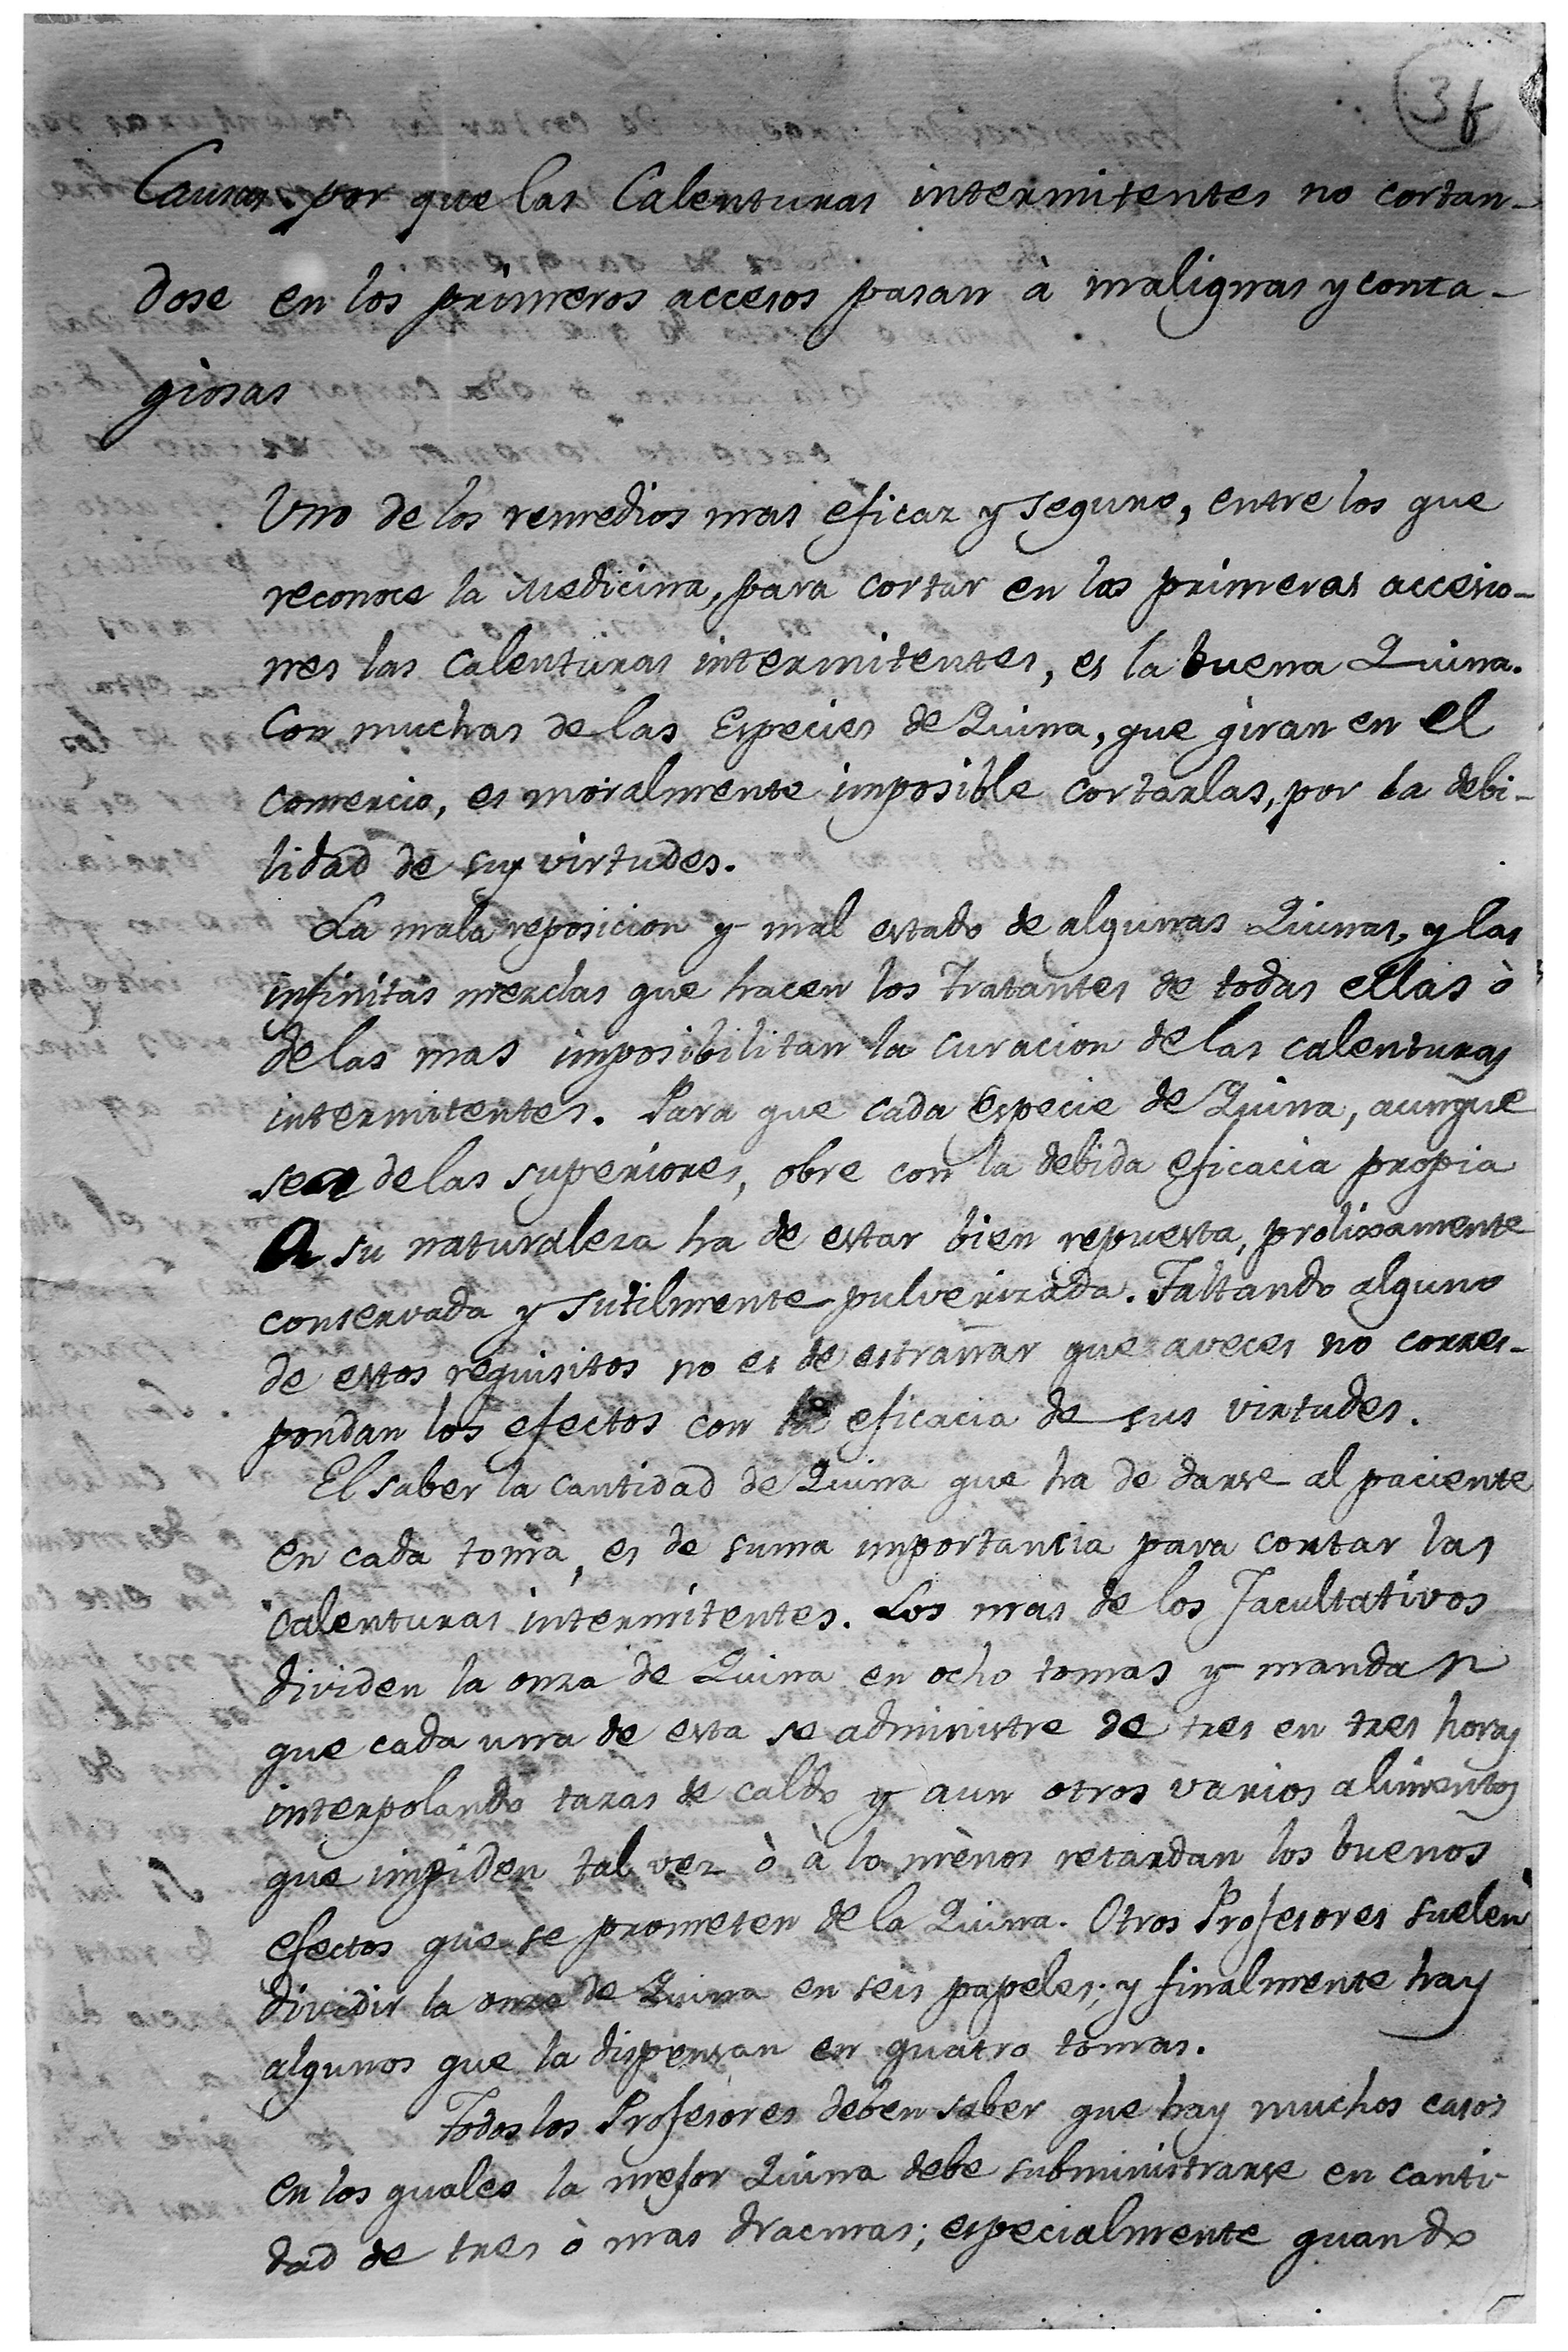 3f
Causas por que las Calenturas intermitentes no cortan-
dose en los primeros accesos pasan à malignas y conta-
giosas
Uno de los remedios mas eficaz y seguro, entre los que
reconoce la Medicina, para cortar en las primeras accesio-
nes las calenturas intermitentes, es la buena Quina.
Con muchas de las Especies de Quina, que giran en el
comercio, es moralmente imposible cortarlas, por la debi-
lidad de sus virtudes.
La mala reposicion y mal estado de algunas Quinas, y las
infinitas mezclas que hacen los Tratantes de todas ellas ò
delas mas imposibilitan la curacion delas calenturas
intermitentes. Para que cada especie de Quina, aunque
sea delas superiores, obre con la debida eficacia propia
a su naturaleza ha de estar bien repuesta, prolixamente
conservada y sutilmente pulverizada. Faltando alguno
de estos requisitos no es de estrañar que aveces no corres-
pondan los efectos con la eficacia de sus virtudes.
El saber la cantidad de Quina que ha de darse al paciente
en cada toma, es de suma importancia para cortar las
calenturas intermitentes. Los mas de los Facultativos
dividen la onza de Quina en ocho tomas y mandan
que cada una de esta se administre de tres en tres horas
interpolando tazas de caldo y aun otros varios alimentos
que impiden tal vez ò à lo mènos retardan los buenos
efectos que se prometen de la Quina. Otros Profesores suelen
dividir la onza de Quina en seis papeles; y finalmente hay
algunos que la dispensan en quatro tomas.
Todos los Profesores deben saber que hay muchos casos
en los quales la mejor Quina debe subministrarse en canti-
dad de tres ò mas dracmas; especialmente quando